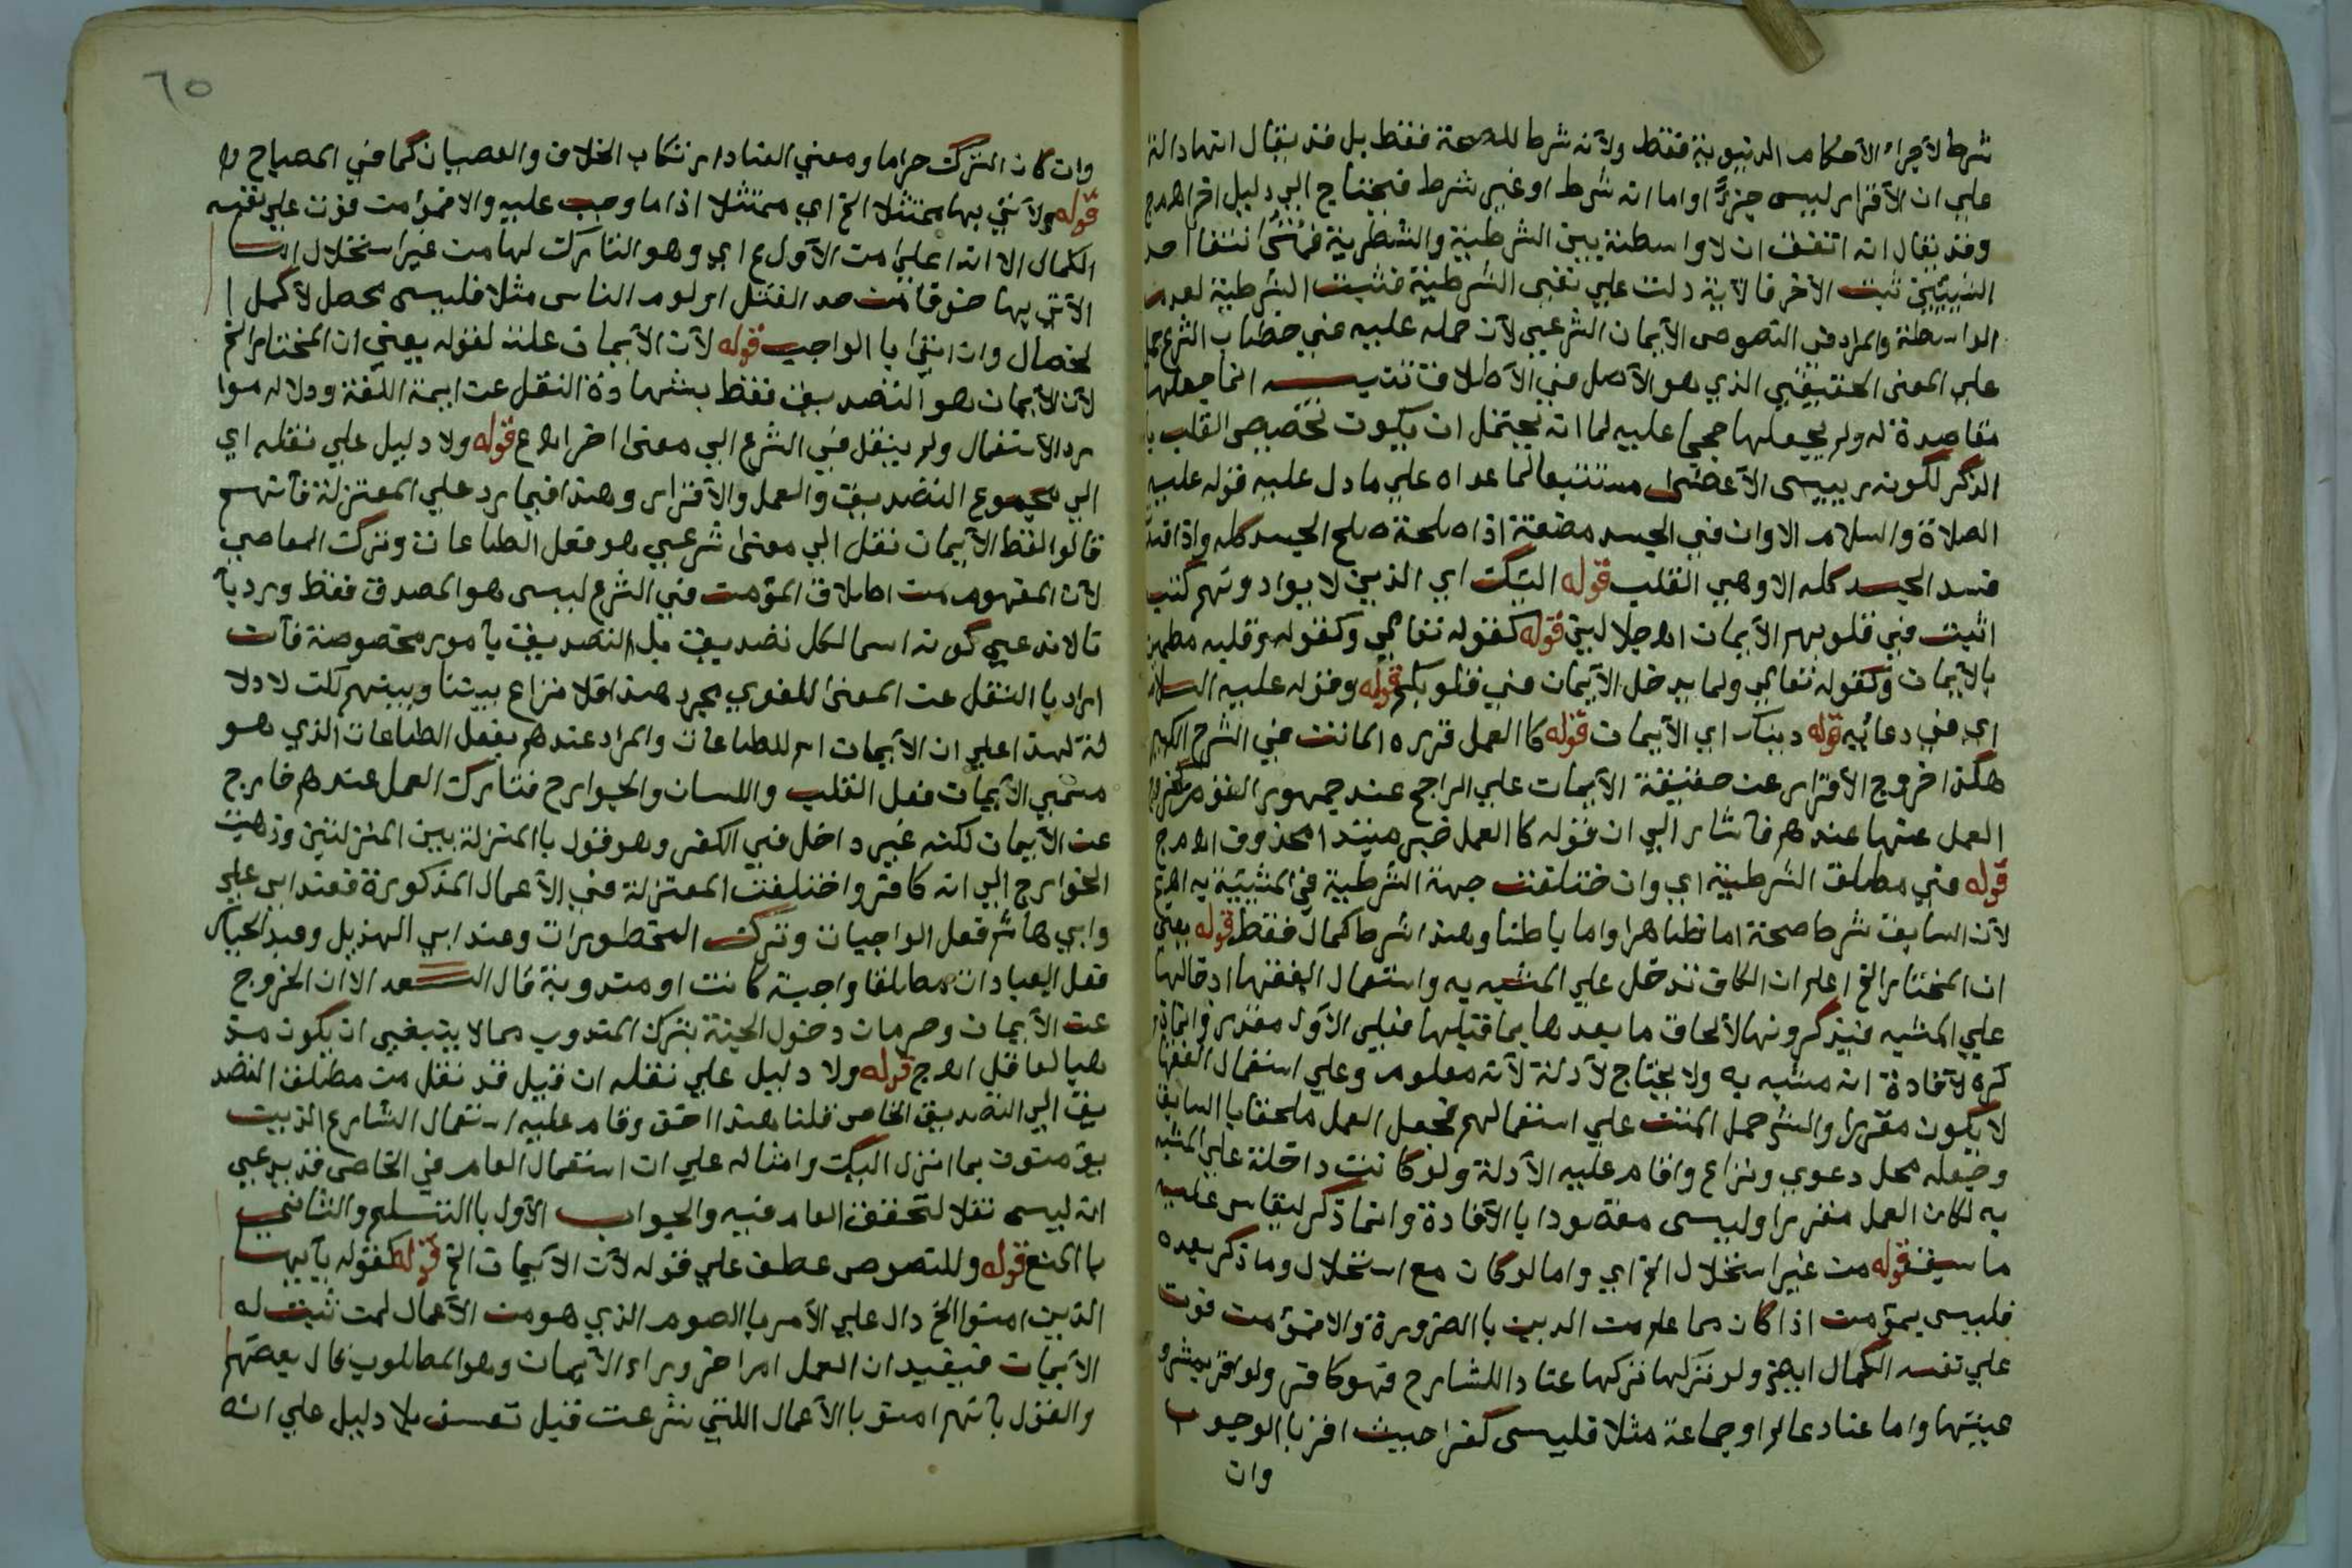 شرط لأجراء الأحكام الدنيوية فقط ولأنه شرط للصحة فقط بل قد يقال انتهاد الة
علي ان الأقرار ليس جزءًا واما انه شرط او غير شرط فيحتاج الي دليل اخر اهـ م ج
وقد يقال انه اتفق ان لا واسطة بين الشرطية والشطرية فمتى انتفا احد
الشيئين ثبت الأخر فالآية دلت علي نفي الشرطية فثبت الشرطية لعدم
الواسطة والمراد في النصوص الأيمان الشرعي لأن حمله عليه في خطاب الشرع حمل
علي المعنى الحقيقي الذي هو الأصل في الأطلاق تنبيه انما جعلها
مقاصدة له ولم يجعلها حججا عليه لما انه يحتمل ان يكون تخصيص القلب با
الذكر لكونه رييس الأعضاء مستتبعا لما عداه علي ما دل عليه قوله عليه
الصلاة والسلام الا وان في الجسد مضغة اذا صلحت صلح الجسد كله واذا فسد
فسد الجسد كله الا وهي القلب قوله اليك اي الذين لا يوادونهم كتب
اثبت في قلوبهم الأيمان اهـ جلالين قوله كقوله تعالي وكقوله وقلبه مطمئن
بالأيمان وكقوله تعالي ولما يدخل الأيمان في قلوبكم قوله وقوله عليه السلام
اي في دعائه قوله دينك اي الأيمان قوله كا العمل قرره المانت في الشرح الكبير
هكذا خروج الأقرار عن حقيقة الأيمان علي الراجح عند جمهور القوم كخروج
العمل عنها عندهم فأشار الي ان قوله كا العمل خبر مبتدا محذوف اهـ م ج
قوله في مطلق الشرطية اي وان ختلفت جهة الشرطية في المشبه به اهـ
لأن السابق شرط صحة اما ظاهرا واما باطنا وهذا شرط كمال فقط قوله يعني
ان المختار الخ اعلم ان الكاف تدخل علي المشبه به واستعمال الفقها ادخالها
علي المشبه فيذكرونها لألحاق ما بعدها بما قبلها فعلي الأول مقرر وانما ذ
كره لأفادة انه مشبه به ولا يحتاج لأدلة لأنه معلوم وعلي استعمال الفقها
لا يكون مقررا والشرحمل المتن علي استعمالهم فجعل العمل ملحقا با السابق
وجعله محل دعوي ونزاع واقام عليه الأدلة ولو كانت داخلة علي المشبه
به لكان العمل مقررا وليس مقصودا با الأفادة وانما ذكر ليقاس عليه
ما سبق قوله من غير استحلال الخ اي واما لو كان مع استحلال وما ذكر بعده
فليس بمؤمن اذا كان مما علم من الدين با الضرورة والا فمؤمن فوت
علي نفسه الكمال ابهج ولو تركها عنادا للشارح فهو كافر ولو اقر بمشرو
عيتها واما عنادعالم او جماعة مثلا فليس كفرا حيث اقر با الوجوب
وان
٦٥
وان كان الترك حراما ومعني العناد ارتكاب الخلاف والعصيان كما في المصباح اهـ
قوله ولأتي بها ممتثلا الخ اي ممتثلا اذا ما وجب عليه والا فمؤمن فوت علي نفسه
الكمال الا انه اعلي من الأول ع اي وهو التارك لها من غير استحلال اما
الأتي بها خوفا من حد القتل او لوم الناس مثلا فليس محصل لأكمل ا
لخصال وان اتي با الواجب قوله لأن الأيمان علة لقوله يعني ان المختار الخ
لأن الأيمان هو التصديق فقط بشهادة النقل عن ايمة اللغة ودلالة موا
رد الأستعمال ولم ينقل في الشرع الي معنى اخر اهـ ع قوله ولا دليل علي نقله اي
الي مجموع التصديق والعمل والأقرار وهذا فيما يرد علي المعتزلة فأنهم
قالوا لفظ الأيمان نقل الي معنى شرعي هو فعل الطاعات وترك المعاصي
لأن المفهوم من اطلاق المؤمن في الشرع ليس هو المصدق فقط ورد با
نا لا ندعي كونه اسما لكل تصديق بل التصديق بأمور مخصوصة فأن
اراد با النقل عن المعنى اللغوي مجرد هذا فلا نزاع بيننا وبينهم لكن لا دلا
لة لهذا علي ان الأيمان اسم للطاعات والمراد عندهم بفعل الطاعات الذي هو
مسمي الأيمان فعل القلب واللسان والجوارح فتارك العمل عندهم خارج
عن الأيمان لكنه غير داخل في الكفر وهو قول با المنزلة بين المنزلتين وذهبت
الخوارج الي انه كافر واختلفت المعتزلة في الأعمال المذكورة فعند ابي علي
وابي هاشم فعل الواجبات وترك المحظورات وعند ابي الهذيل وعبد الجبار
فعل العبادات مطلقا واجبة كانت او مندوبة قال السعد الا ان الخروج
عن الأيمان وحرمان دخول الجنة بترك المندوب مما لا ينبغي ان يكون مذ
هبا لعاقل اهـ م ج قوله ولا دليل علي نقله ان قيل قد نقل من مطلق التصد
يق الي التصديق الخاص قلنا هذا احق وقام عليه استعمال الشارع الذين
يؤمنون بما انزل اليك وامثاله علي ان استعمال العام في الخاص قد يدعي
انه ليس نقلا لتحقق العام فيه والجواب الأول با التسليم والثاني
با المنع قوله وللنصوص عطف علي قوله لأن الأيمان الخ قوله كقوله يأيها
الذين امنوا الخ دال علي الأمر با الصوم الذي هو من الأعمال لمن ثبت له
الأيمان فيفيد ان العمل امرا خر وراء الأيمان وهو المطلوب قال بعضهم
والقول بأنهم امنو با الأعمال اللتي شرعت قبل تعسف بلا دليل علي انه